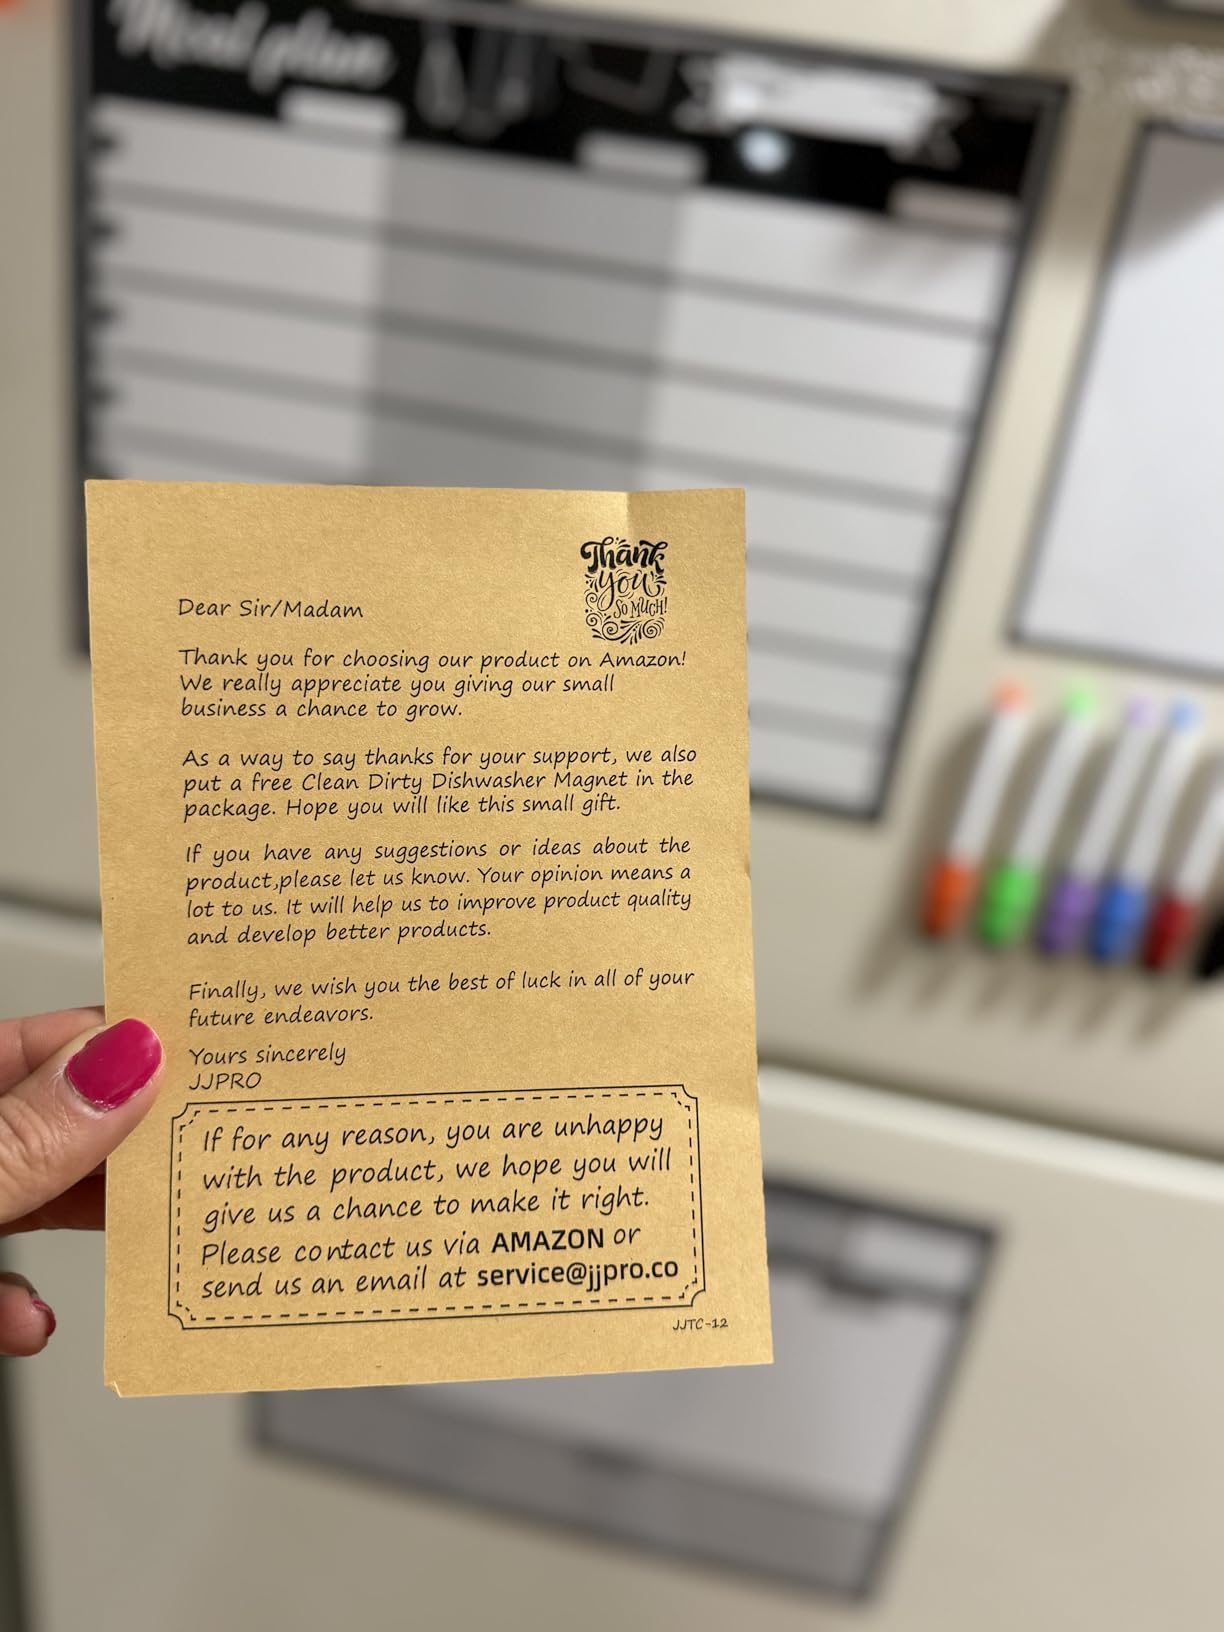 Meal plan
Thank
you
SO MUCH!
Dear Sir/Madam
Thank you for choosing our product on Amazon!
We really appreciate you giving our small
business a chance to grow.
As a way to say thanks for your support, we also
put a free Clean Dirty Dishwasher Magnet in the
package. Hope you will like this small gift.
If you have any suggestions or ideas about the
product,please let us know. Your opinion means a
lot to us. It will help us to improve product quality
and develop better products.
Finally, we wish you the best of luck in all of your
future endeavors.
Yours sincerely
JJPRO
If for any reason, you are unhappy
with the product, we hope you will
give us a chance to make it right.
Please contact us via AMAZON or
send us an email at service@jjpro.co
JJTC-12